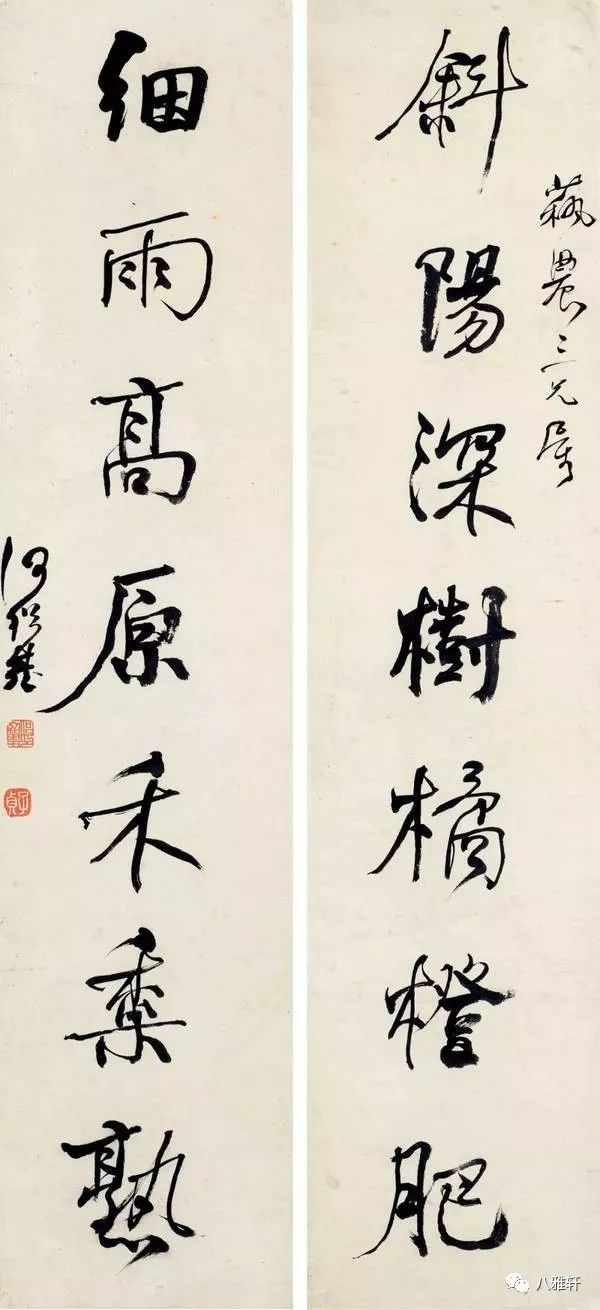 農三兄屬
斜陽深樹橘橙肥
細雨高原禾黍熟
何紹基
子貞
八雅轩